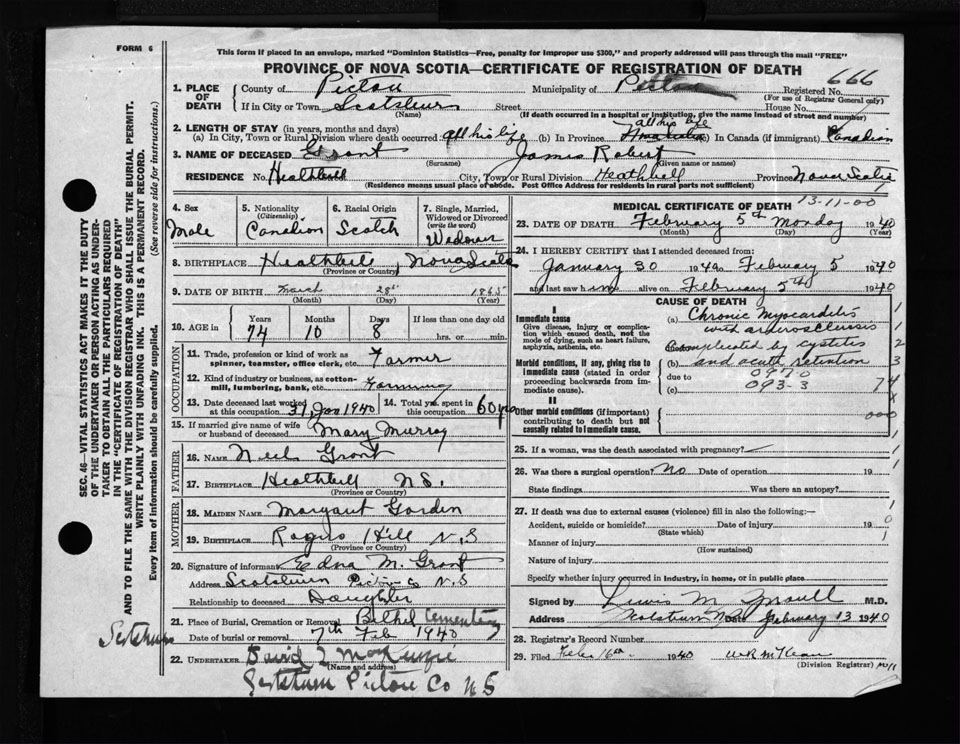 FORM 6
This form if placed in an envelope, marked "Dominion Statistics—Free, penalty for improper use $300," and properly addressed will pass through the mail "FREE"
PROVINCE OF NOVA SCOTIA—CERTIFICATE OF REGISTRATION OF DEATH
666
1. PLACE OF DEATH
County of Pictou Municipality of Pictou Registered No.
(For use of Registrar General only)
If in City or Town Scotsburn Street House No.
(Name) (If death occurred in a hospital or institution, give the name instead of street and number)
2. LENGTH OF STAY (in years, months and days)
all his life
(a) In City, Town or Rural Division where death occurred all his life (b) In Province (c) In Canada (if immigrant) Canadian
3. NAME OF DECEASED Grant James Robert
(Surname) (Given name or names)
RESIDENCE No. Heathbell City, Town or Rural Division Heathbell Province Nova Scotia
(Residence means usual place of abode. Post Office Address for residents in rural parts not sufficient)
4. Sex
Male
5. Nationality
(Citizenship)
Canadian
6. Racial Origin
Scotch
7. Single, Married, Widowed or Divorced
(write the word)
Widower
8. BIRTHPLACE Heathbell, Nova Scotia
(Province or Country)
9. DATE OF BIRTH March 28th 1865
(Month) (Day) (Year)
10. AGE in
Years Months Days If less than one day old
74 10 8 hrs. or min.
OCCUPATION
11. Trade, profession or kind of work as spinner, teamster, office clerk, etc. Farmer
12. Kind of industry or business, as cotton-mill, lumbering, bank, etc. Farming
13. Date deceased last worked at this occupation 31 Jan 1940
14. Total yrs. spent in this occupation 60 yrs
15. If married give name of wife or husband of deceased Mary Murray
FATHER
16. NAME Neil Grant
17. BIRTHPLACE Heathbell N S.
(Province or Country)
MOTHER
18. MAIDEN NAME Margaret Gordon
19. BIRTHPLACE Rogers Hill N. S
(Province or Country)
20. Signature of informant Edna M. Grant
Address Scotsburn Pictou Co N.S
Relationship to deceased Daughter
21. Place of Burial, Cremation or Removal Bethel Cementery
Date of burial or removal 7th Feb 1940
22. UNDERTAKER David
(Name and address)
Pictou Co N S
MEDICAL CERTIFICATE OF DEATH
13-11-00
23. DATE OF DEATH February 5th Monday 1940
(Month) (Day) (Year)
24. I HEREBY CERTIFY that I attended deceased from:
January 30 1940 to February 5 1940
and last saw him alive on February 5th 1940
CAUSE OF DEATH
I
Immediate cause
Give disease, injury or complication which caused death, not the mode of dying, such as heart failure, asphyxia, asthenia, etc.
(a) Chronic Myocarditis
with arteriosclerosis
Complicated by cystitis
Morbid conditions, if any, giving rise to immediate cause (stated in order proceeding backwards from immediate cause).
(b) and acute retention
due to
(c) 093-3
II
Other morbid conditions (if important) contributing to death but not causally related to immediate cause.
25. If a woman, was the death associated with pregnancy?
26. Was there a surgical operation? No Date of operation 19
State findings Was there an autopsy?
27. If death was due to external causes (violence) fill in also the following:—
Accident, suicide or homicide? Date of injury 19
(State which)
Manner of injury
(How sustained)
Nature of injury
Specify whether injury occurred in industry, in home, or in public place
Signed by Lewis M. M.D.
Address Scotsburn N.S. Date February 13 1940
28. Registrar's Record Number
29. Filed Feb 16th 1940 W R McKean
(Division Registrar)
SEC. 46—VITAL STATISTICS ACT MAKES IT THE DUTY
OF THE UNDERTAKER OR PERSON ACTING AS UNDER-
TAKER TO OBTAIN ALL THE PARTICULARS REQUIRED
IN THE "CERTIFICATE OF REGISTRATION OF DEATH"
AND TO FILE THE SAME WITH THE DIVISION REGISTRAR WHO SHALL ISSUE THE BURIAL PERMIT.
WRITE PLAINLY WITH UNFADING INK. THIS IS A PERMANENT RECORD.
Every item of information should be carefully supplied. (See reverse side for instructions.)